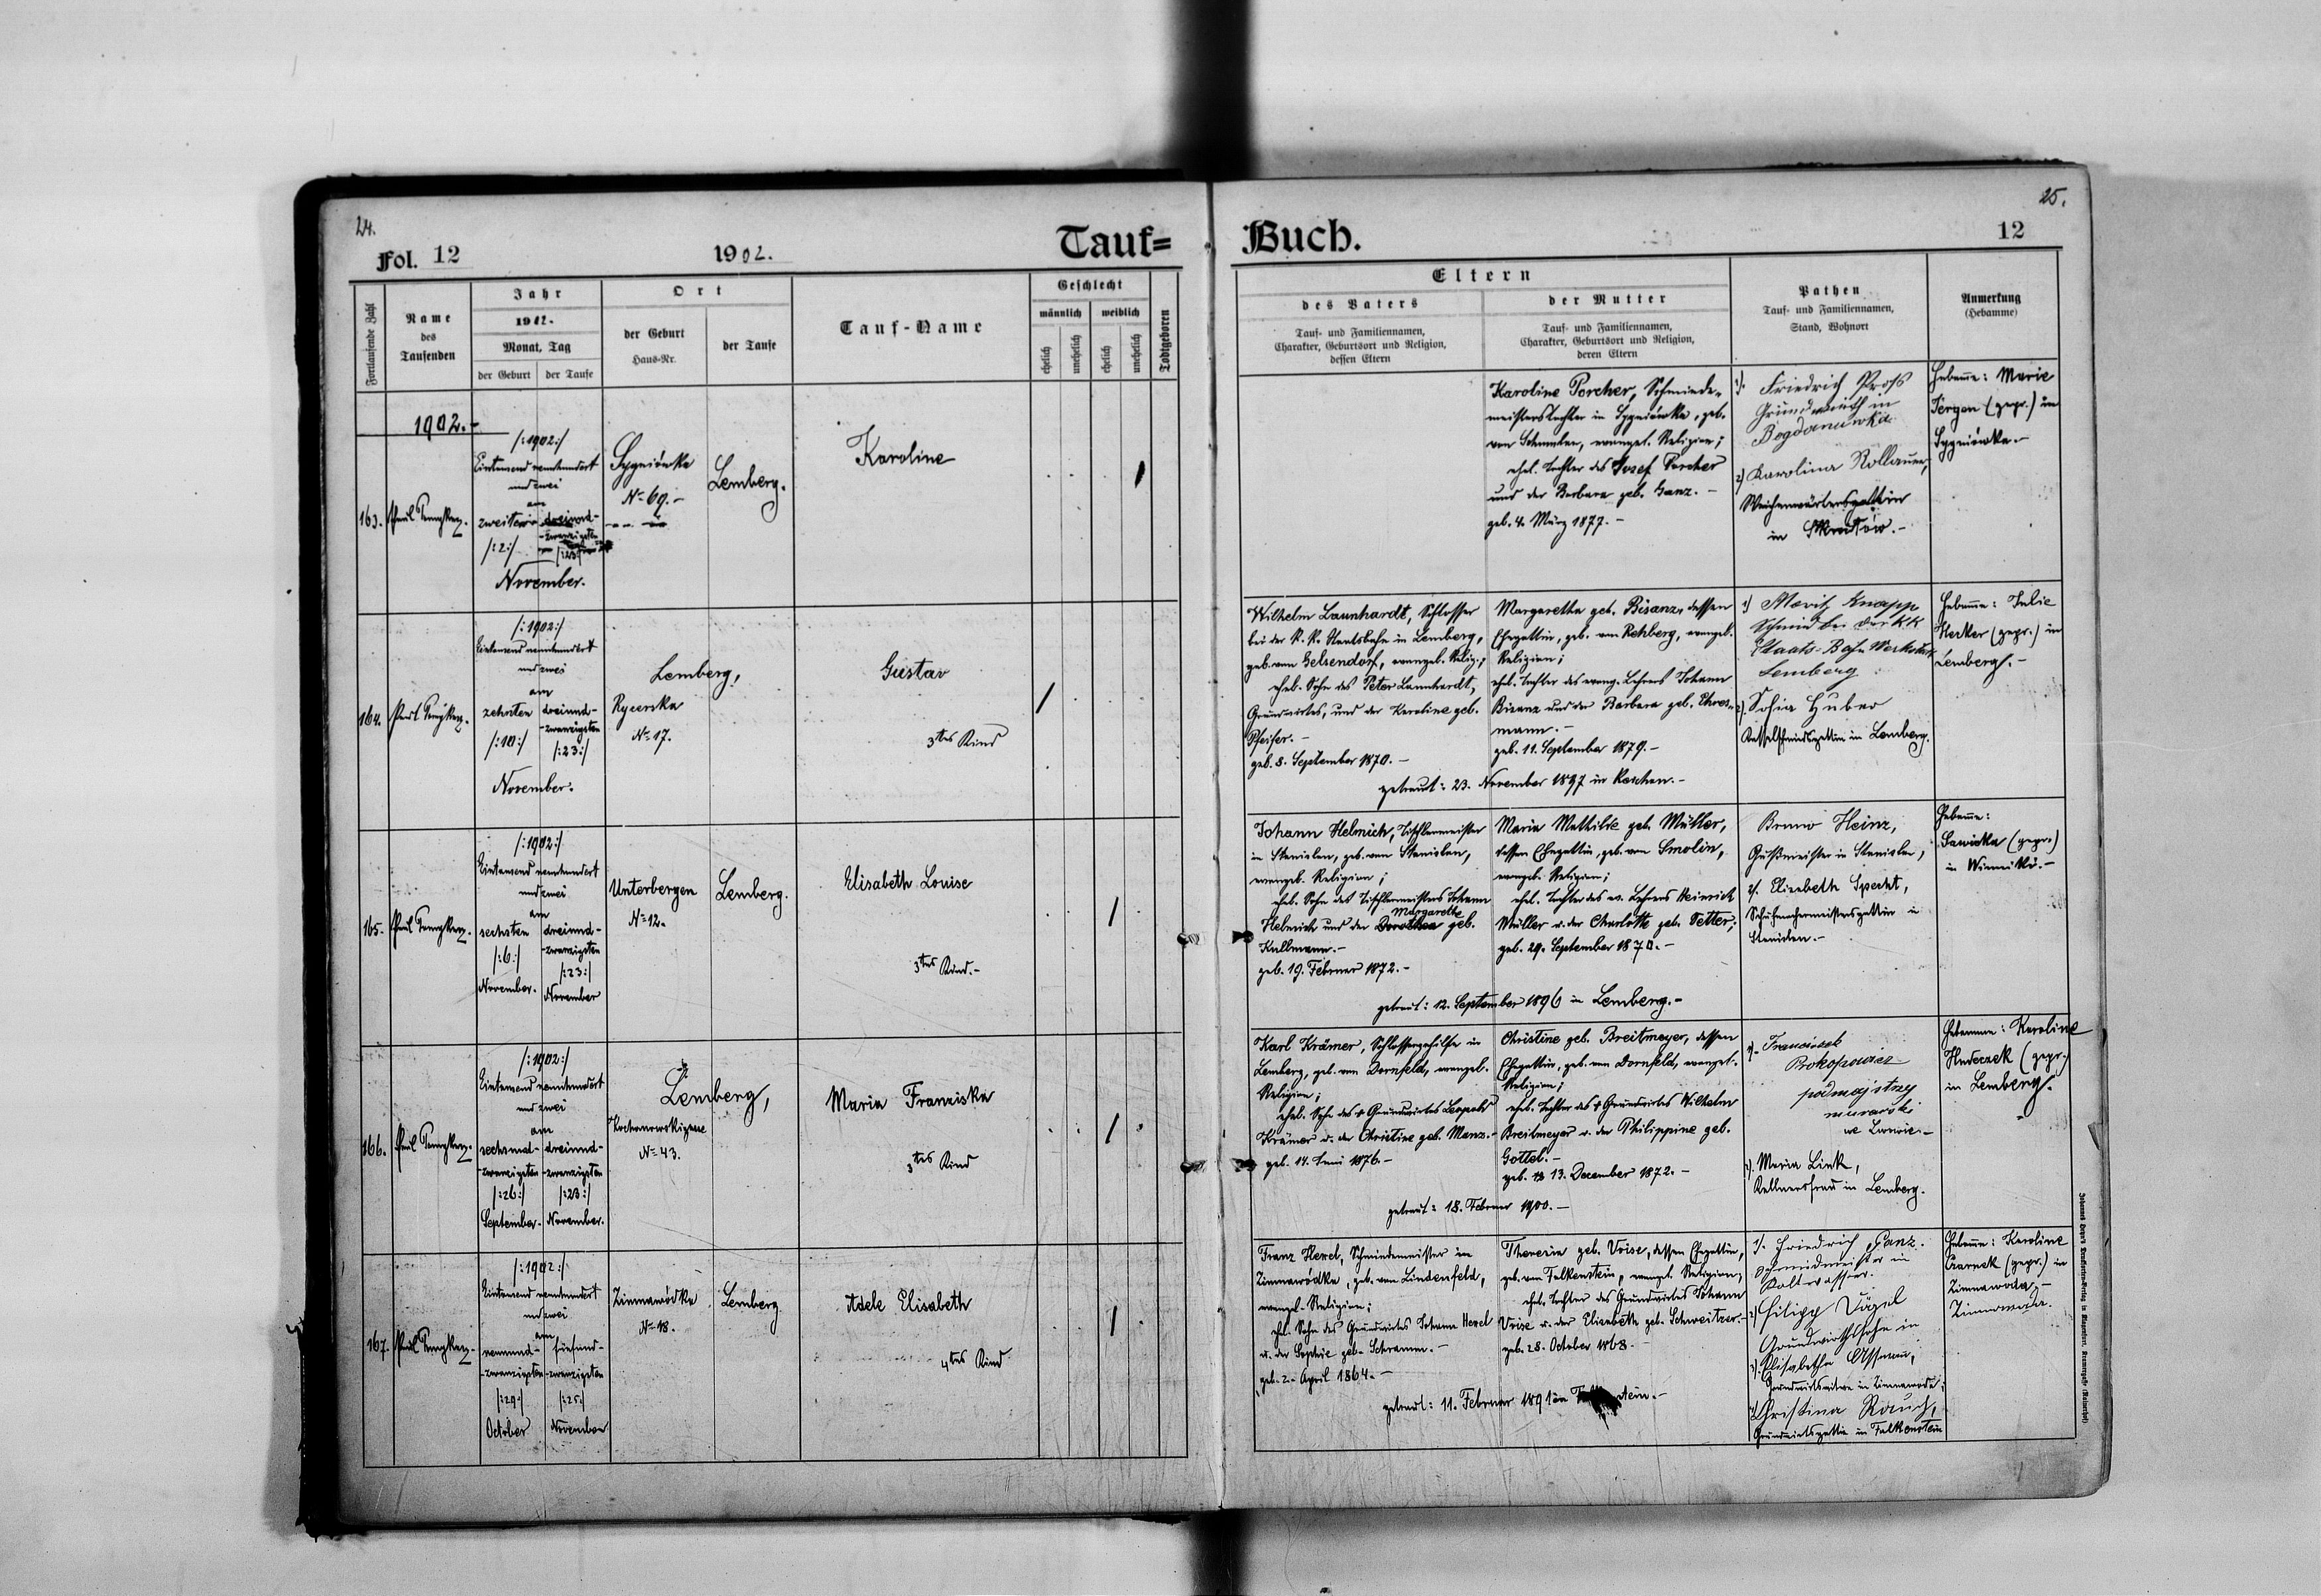 24.
Fol. 12
1902.
Tauf=
Fortlaufende Zahl
Name
des
Taufenden
Jahr
1902.
Monat, Tag
der Geburt
der Taufe
Ort
der Geburt
Haus-Nr.
der Taufe
Tauf-Name
Geschlecht
männlich
weiblich
ehelich
unehelich
ehelich
unehelich
Todtgeboren
1902.-
163.
/:1902:/
Eintausend neunhundert
und zwei
am
zweiten
/:2:/
dreiund-
-zwanzigsten
/:23:/
November.
Sygniówka
No 69.-
Lemberg.
Karoline
164.
/:1902:/
Eintausend neunhundert
und zwei
am
zehnten
/:10:/
dreiund-
-zwanzigsten
/:23:/
November.
Lemberg,
Rycerska
No 17.
Gustav
3tes Kind
165.
/:1902:/
Eintausend neunhundert
und zwei
am
sechsten
/:6:/
November.
dreiund-
-zwanzigsten
/:23:/
November
Unterbergen
No 12.
Lemberg.
Elisabeth Louise
3tes Kind.-
166.
/:1902:/
Eintausend neunhundert
und zwei
am
sechsund-
-zwanzigsten
/:26:/
September.
dreiund-
-zwanzigsten
/:23:/
November.
Lemberg,
Kochanowskigasse
No 43.
Maria Franziska
3tes Kind
167.
/:1902:/
Eintausend neunhundert
und zwei
am
neunund-
-zwanzigsten
/:29:/
October
fünfund-
-zwanzigsten
/:25:/
November
Zimnawódka
No 18.
Lemberg
Adele Elisabeth
4tes Kind
25.
Buch.
12
Eltern
des Vaters
Tauf- und Familiennamen,
Charakter, Geburtsort und Religion,
dessen Eltern
der Mutter
Tauf- und Familiennamen,
Charakter, Geburtsort und Religion,
deren Eltern
Pathen
Tauf- und Familiennamen,
Stand, Wohnort
Anmerkung
(Hebamme)
Karoline Porcher, Schmiede-
meisterstochter in Sygniówka, geb.
von evangel. Religion;
ehel. Tochter des Josef Porcher
und der Barbara geb. Ganz.-
geb. 4. März 1877.-
1). Friedrich Pross
Grundwirth in
Bogdanówka
2) Karolina Rollauer,
Weichenwärtersgattin
in
Hebamme: Marie
(gepr.) in
Sygniówka.-
Wilhelm Launhardt, Schlosser
bei der k. k. Staatsbahn in Lemberg,
geb. von Gelsendorf, evangel. Relig.;
ehel. Sohn des Peter Launhardt,
Grundwirtes, und der Karoline geb.
Pfeifer.-
geb. 8. September 1870.-
Margaretha geb. Bisanz, dessen
Ehegattin, geb. von Rehberg, evangel.
Religion;
ehel. Tochter des evang. Lehrers Johann
Bisanz und der Barbara geb. Ehres-
mann.-
geb. 11. September 1879.-
getraut: 23. November 1897 in
1) Moritz Knapp
Schmied bei der KK
Staats-Bahn Werkstatt
Lemberg
2). Sofia Huber
Kesselschmiedsgattin in Lemberg.
Hebamme: Julie
(gepr.) in
Lemberg.-
Johann Helmich, Tischlermeister
in Stanislau, geb. von Stanislau,
evangel. Religion;
ehel. Sohn des Tischlermeisters Johann
Margarethe
Helmich und der Dorothea geb.
Kullmann.-
geb. 19. Februar 1872.-
Maria Mathilde geb. Müller,
dessen Ehegattin, geb. von Smolin,
evangel. Religion;
ehel. Tochter des ev. Lehrers Heinrich
Müller u. der Charlotte geb. Vetter;
geb. 29. September 1870.-
getraut: 12. September 1896 in Lemberg.-
Bruno Heinz,
Gußmeister in Stanislau,
2). Elisabeth Specht,
Schuhmachermeistersgattin in
Stanislau.-
Hebamme:
Sawicka (gepr.)
in Winniki.-
Karl Krämer, Schlossergehilfe in
Lemberg, geb. von Dornfeld, evangel.
Religion;
ehel. Sohn des + Grundwirtes Leopold
Krämer u. der Christine geb. Manz.-
geb. 14. Juni 1876.-
Christine geb. Breitmeyer, dessen
Ehegattin, geb. von Dornfeld, evangel.
Religion;
ehel. Tochter des + Grundwirtes Wilhelm
Breitmeyer u. der Philippine geb.
Gottel.-
geb. 13. December 1872.-
getraut: 18. Februar 1900.-
1). Franciszek
Prokopowicz
podmajstrzy
murarski
we Lwowie.-
2). Maria Link,
Kellnersfrau in Lemberg.
Hebamme: Karoline
(gepr.)
in Lemberg.
Franz Hexel, Schmiedemeister in
Zimnawódka, geb. von Lindenfeld,
evangel. Religion;
ehel. Sohn des Grundwirtes Johann Hexel
u. der Sophie geb. Schramm.-
geb. 2. April 1864.-
geb. Voise, dessen Ehegattin,
geb. von Falkenstein, evangel. Religion,
ehel. Tochter des Grundwirtes Johann
Voise u. der Elisabeth geb. Schweitzer.-
geb. 28. October 1868.-
getraut: 11. Februar 1891 in
1). Friedrich Ganz.
Schmidmeister in
Kaltwasser.
2) Filipp
Grundwirthssohn in
3). Elisabetha Assmann,
Grundwirtswitwe in Zimnawoda;
4) Christina Rauch,
Grundwirtsgattin in Falkenstein
Hebamme: Karoline
Czarnek (gepr.) in
Zimnawoda.-
Zimnowoda.